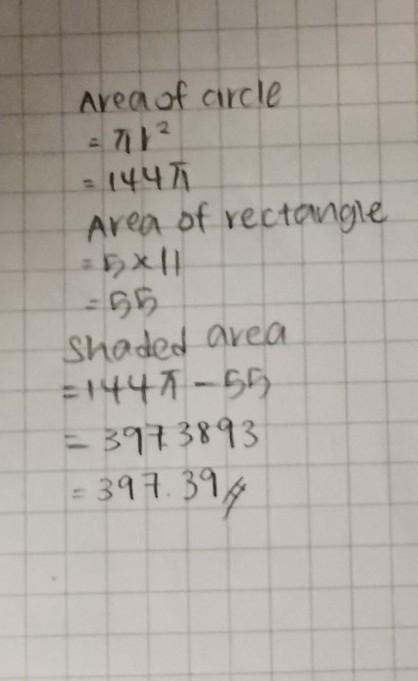 Area of circle
= πr²
= 144π
Area of rectangle
= 5 × 11
= 55
Shaded area
= 144π - 55
= 397.3893
= 397.39